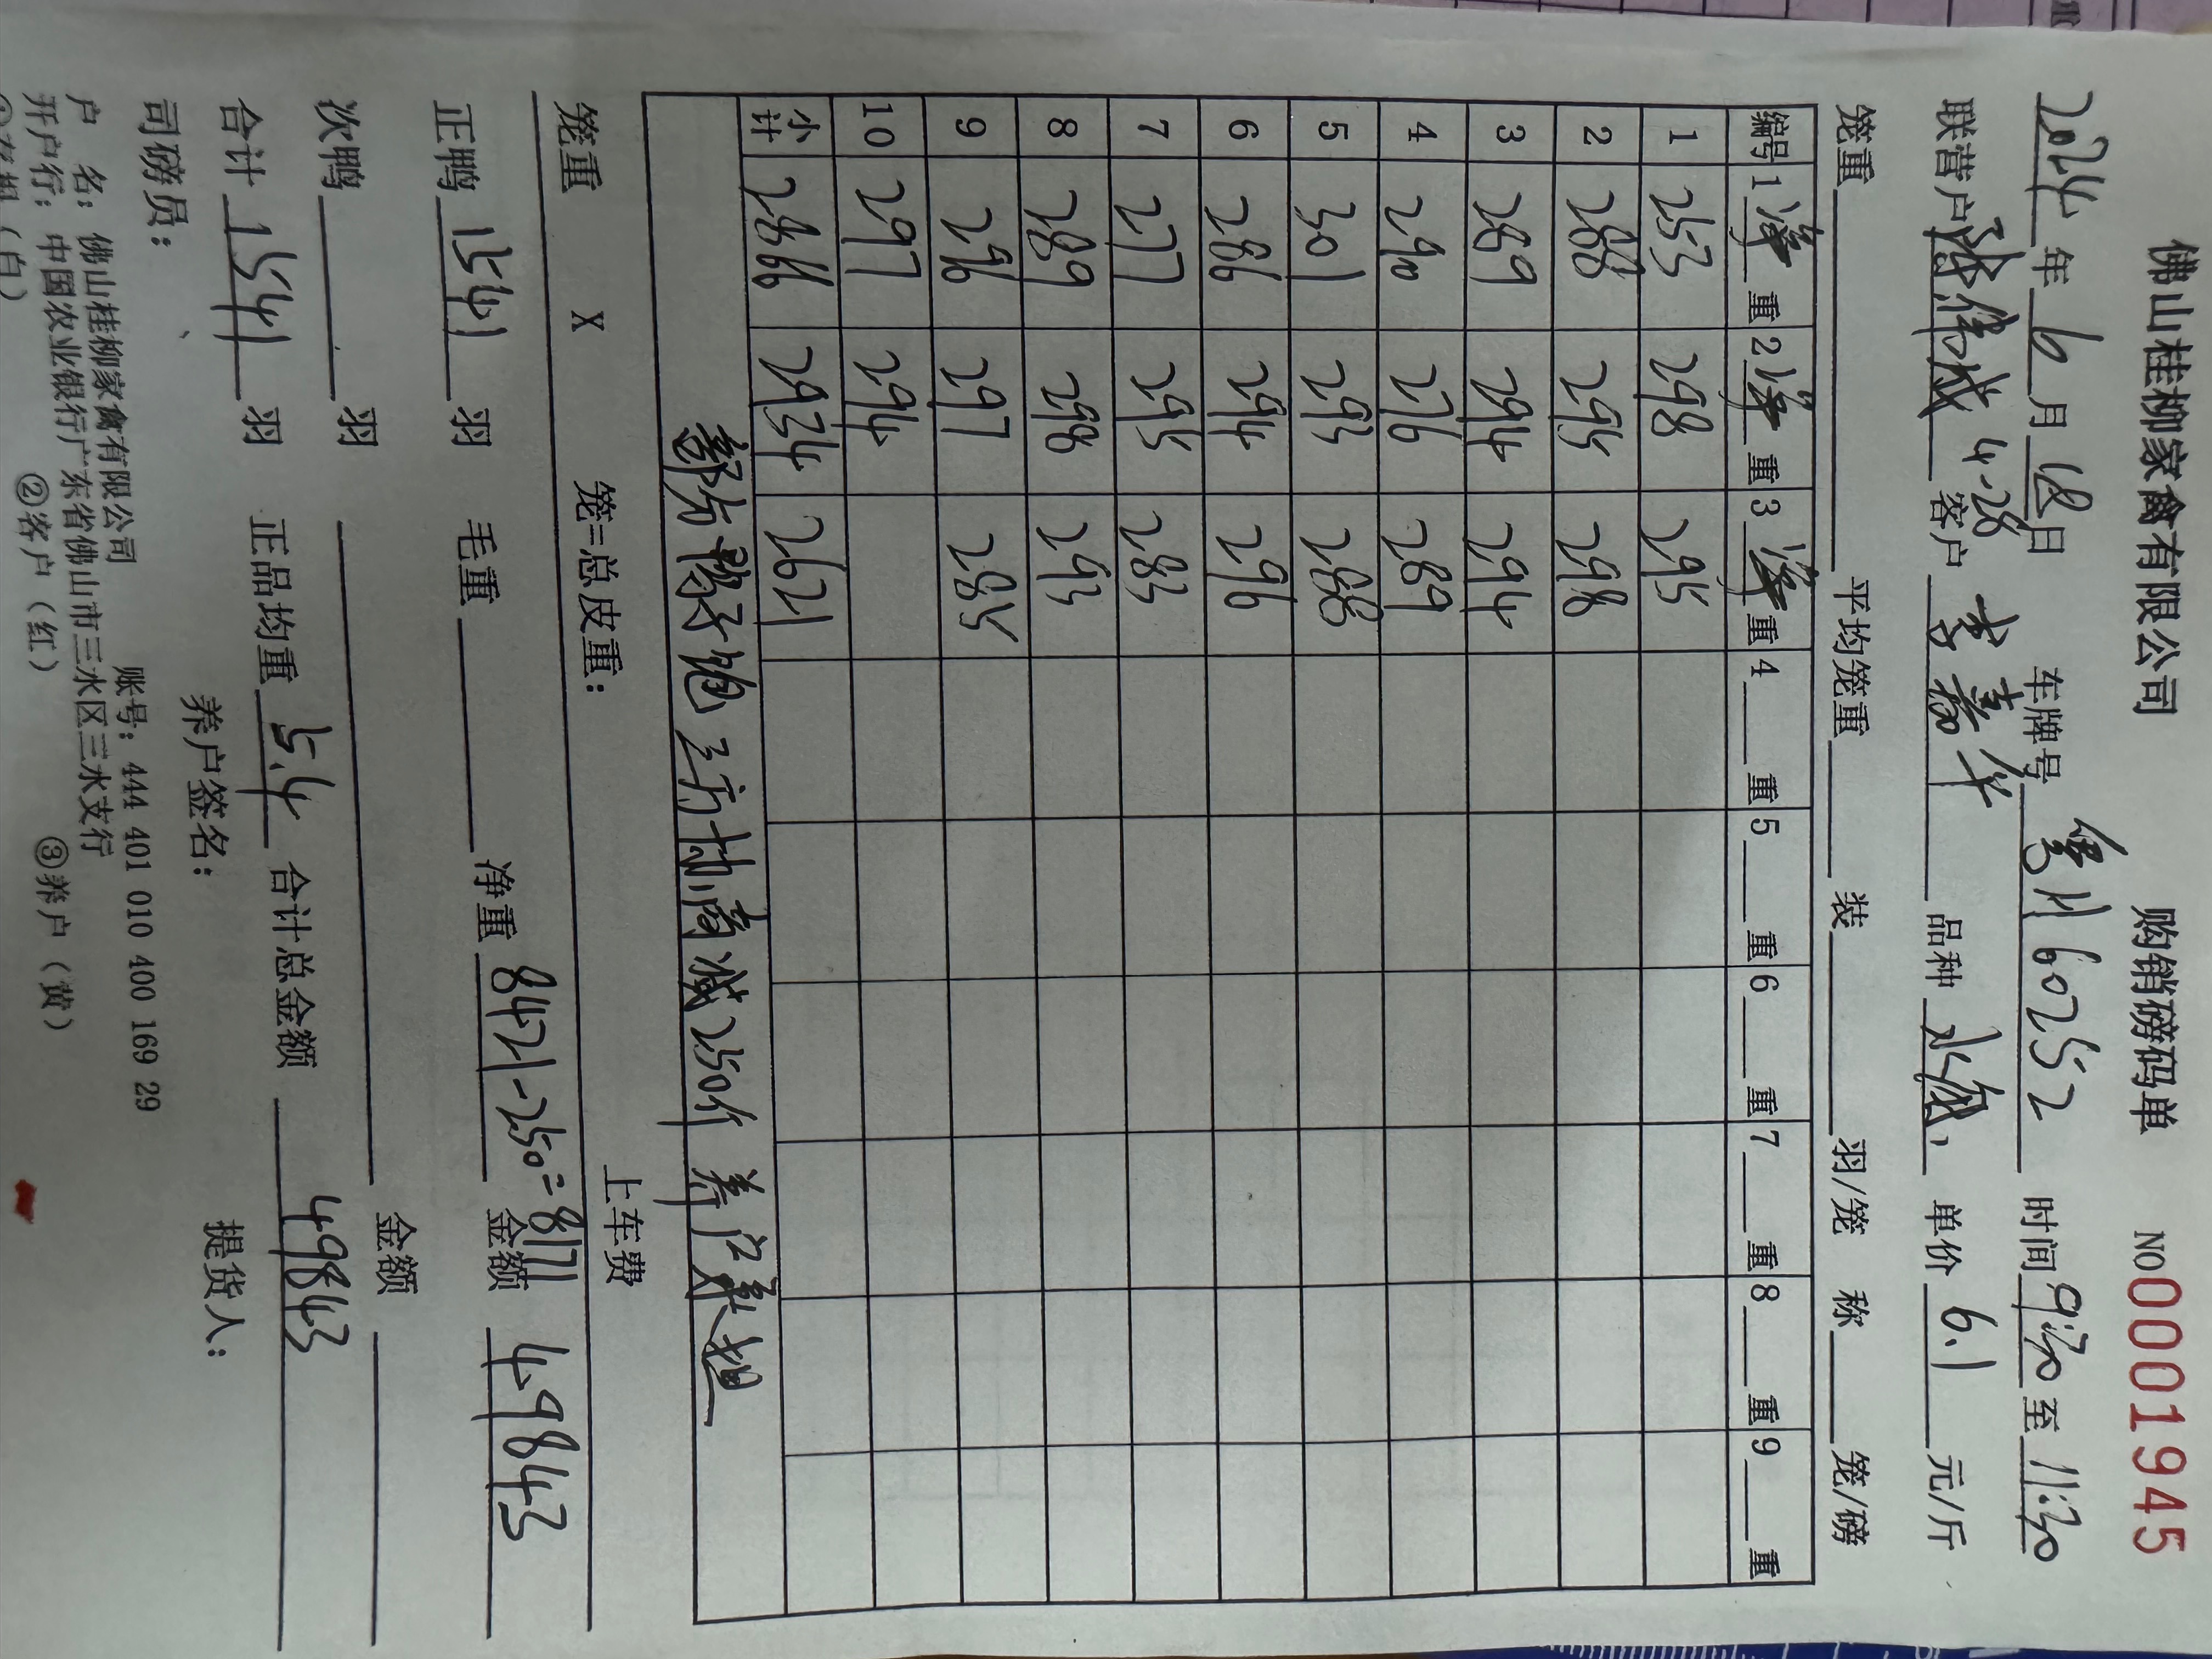 佛山桂柳家禽有限公司 购销磅码单 NO00001945
2024年6月18日 车牌号 粤H60252 时间9:30至11:30
联营户 4-28 客户 李嘉华 品种 水鸭 单价 6.1 元/斤
笼重 平均笼重 装 羽/笼 称 笼/磅
编号 1净重 2净重 3净重 4 重 5 重 6 重 7 重 8 重 9 重
1 253 298 295
2 288 295 298
3 289 294 294
4 290 276 289
5 301 293 288
6 286 294 296
7 277 295 283
8 289 298 293
9 296 297 285
10 297 294
小计 2866 2934 2621
三方协商减250斤 养户承担
笼重 X 笼=总皮重: 上车费
正鸭 1541 羽 毛重 净重 8421-250=8171 金额 49843
次鸭 羽 金额
合计 1541 羽 正品均重 5.4 合计总金额 49843
司磅员: 养户签名: 提货人:
户 名: 佛山桂柳家禽有限公司 账号: 444 401 010 400 169 29
开户行: 中国农业银行广东省佛山市三水区三水支行
(白) ②客户(红) ③养户(黄)